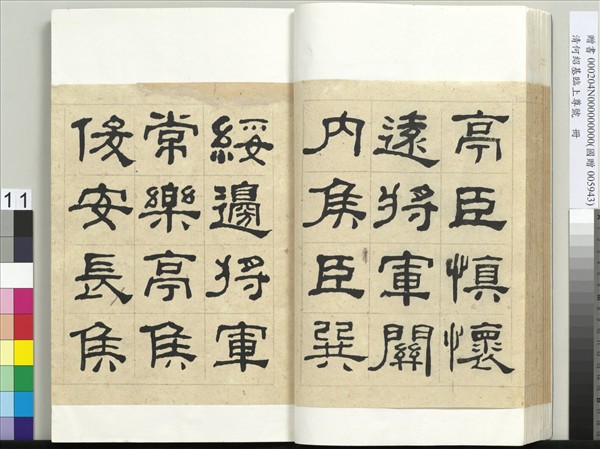 亭臣慎懷
遠將軍關
內侯臣巽
綏邊將軍
常樂亭侯
俊安長侯
贈書 000204N000000000(國贈 005943)
清何紹基臨上尊號 冊
11